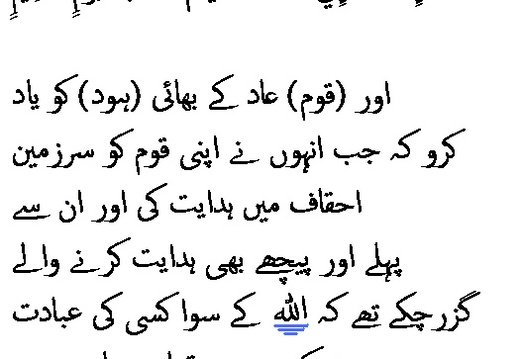 اور (قوم) عاد کے بھائی (ہود) کو یاد
کرو کہ جب انہوں نے اپنی قوم کو سرزمین
احقاف میں ہدایت کی اور ان سے
پہلے اور پیچھے بھی ہدایت کرنے والے
گزرچکے تھے کہ الله کے سوا کسی کی عبادت